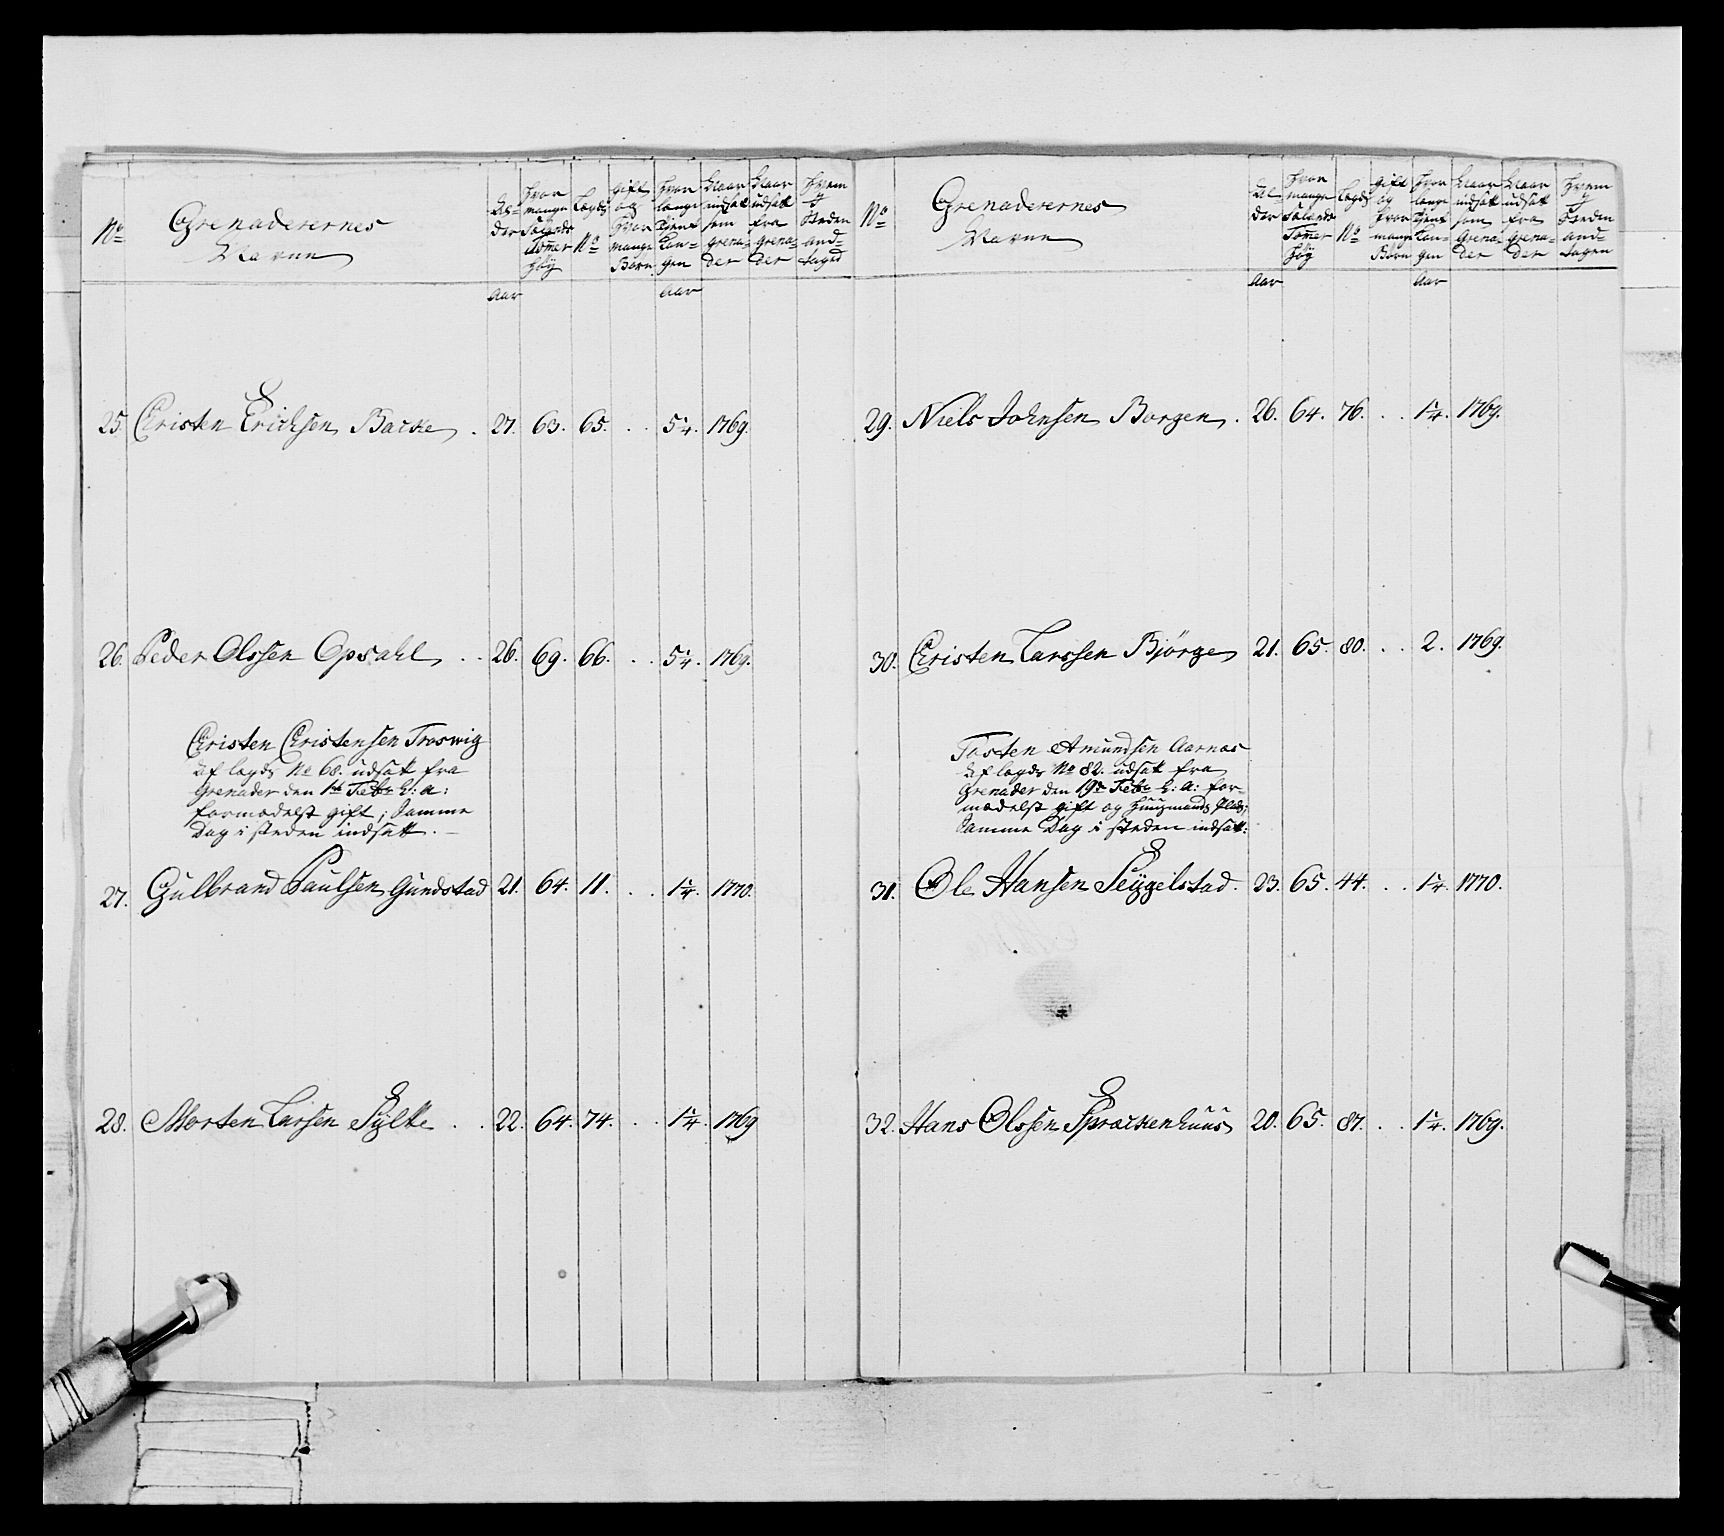 No
Grenaderernes
Navne
Al-
der
hvor
mange
Sølands
Tomer
høy
Lægds
No
Gift
og
hvor
mange
Børn
hvor
lange
tient
Lan-
gen
Naar
indsatt
som
Grena-
der
Naar
udsatt
fra
Grena-
der
hvem
y
steden
and-
tagen
Aar
Aar
25. Christen Erichsen Bache . 27. 63. 65. . . 5 1/4. 1769.
26. Peder Olssen Opsahl . . 26. 69. 66. . . 5 1/4. 1769.
Christen Christensen Troswig
Af lægds No 68. udsatt fra
Grenader den 1te Febr h: a:
formedelst gift; Samme
Dag i steden indsatt.
27. Gulbrand Paulsen Gundstad 21. 64. 11. . . 1 1/4. 1770.
28. Morten Larsen Sylte . . 22. 64. 74. . . 1 1/4. 1769
No
Grenaderernes
Navne
Al-
der
hvor
mange
Sølands
Tomer
høy
Lægds
No
Gift
og
hvor
mange
Børn
hvor
lange
tient
Lan-
gen
Naar
indsatt
som
Grena-
der
Naar
udsatt
fra
Grena-
der
hvem
y
steden
and-
tagen
Aar
Aar
29. Niels Johnsen Borgen . 26. 64. 76. . . 1 1/4. 1769.
30. Christen Larssen Bjørge 21. 65. 80. . . 2. 1769.
Tosten Amundsen Aarnæs
Af lægds No 82. udsatt fra
Grenader den 19de Febr h: a: for-
medelst gift og Huusmands Plads;
Samme Dag i steden indsatt:
31. Ole Hansen Seygelstad. 23. 65. 44. . . 1 1/4. 1770.
32. Hans Olssen Sprækenhuus 20. 65. 87. . . 1 1/4. 1769.